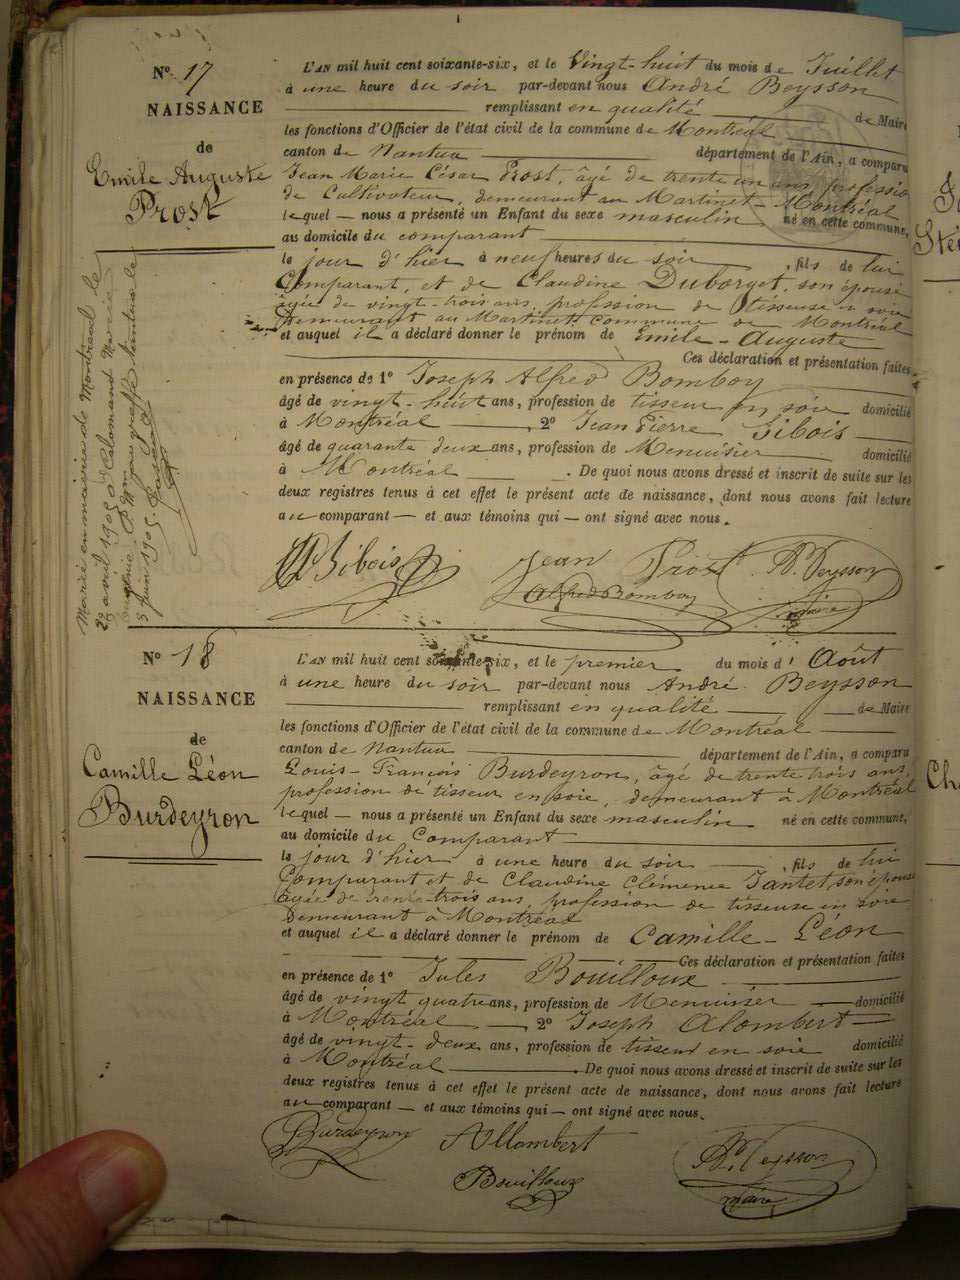 N° 17
NAISSANCE
de
Emile Auguste
Prost
L'AN mil huit cent soixante-six, et le Vingt-huit du mois de Juillet
à une heure du soir par-devant nous André Beysson
remplissant en qualité de Maire
les fonctions d'Officier de l'état civil de la commune de Montréal
canton de Nantua département de l'Ain, a comparu
Jean Marie César Prost, âgé de trente un ans, profession
de Cultivateur, demeurant au Martinet-Montréal
lequel — nous a présenté un Enfant du sexe masculin né en cette commune,
au domicile du comparant
le jour d'hier à neuf heures du soir, fils de lui
Comparant, et de Claudine Duborget, son épouse
âgée de vingt-trois ans, profession de tisseuse en soie
Demeurant au Martinet, commune de Montréal
et auquel il a déclaré donner le prénom de Emile-Auguste
Ces déclaration et présentation faites
en présence de 1° Joseph Alfred Bomboy
âgé de vingt-huit ans, profession de tisseur en soie domicilié
à Montréal, 2° Jean Pierre Sibois
âgé de quarante deux ans, profession de Menuisier domicilié
à Montréal. De quoi nous avons dressé et inscrit de suite sur les
deux registres tenus à cet effet le présent acte de naissance, dont nous avons fait lecture
au comparant — et aux témoins qui — ont signé avec nous.
Sibois Jean Prost Beysson
Alfred Bomboy maire
Marié en mairie de Montréal le
22 avril 1905 à Marie
Eugénie
8 juin 1905.
N° 18
NAISSANCE
de
Camille Léon
Burdeyron
L'AN mil huit cent soixante-six, et le premier du mois d'Août
à une heure du soir par-devant nous André Beysson
remplissant en qualité de Maire
les fonctions d'Officier de l'état civil de la commune de Montréal
canton de Nantua département de l'Ain, a comparu
Louis-François Burdeyron, âgé de trente trois ans,
profession de tisseur en soie, demeurant à Montréal
lequel — nous a présenté un Enfant du sexe masculin né en cette commune,
au domicile du Comparant
le jour d'hier à une heure du soir, fils de lui
Comparant et de Claudine Clémence Tantet, son épouse
âgée de trente-trois ans, profession de tisseuse en soie
Demeurant à Montréal
et auquel il a déclaré donner le prénom de Camille-Léon
Ces déclaration et présentation faites
en présence de 1° Jules Bouilloux
âgé de vingt quatre ans, profession de Menuisier domicilié
à Montréal, 2° Joseph Alombert
âgé de vingt-deux ans, profession de tisseur en soie domicilié
à Montréal. De quoi nous avons dressé et inscrit de suite sur les
deux registres tenus à cet effet le présent acte de naissance, dont nous avons fait lecture
au comparant — et aux témoins qui — ont signé avec nous.
Burdeyron Allombert Beysson
Bouilloux maire